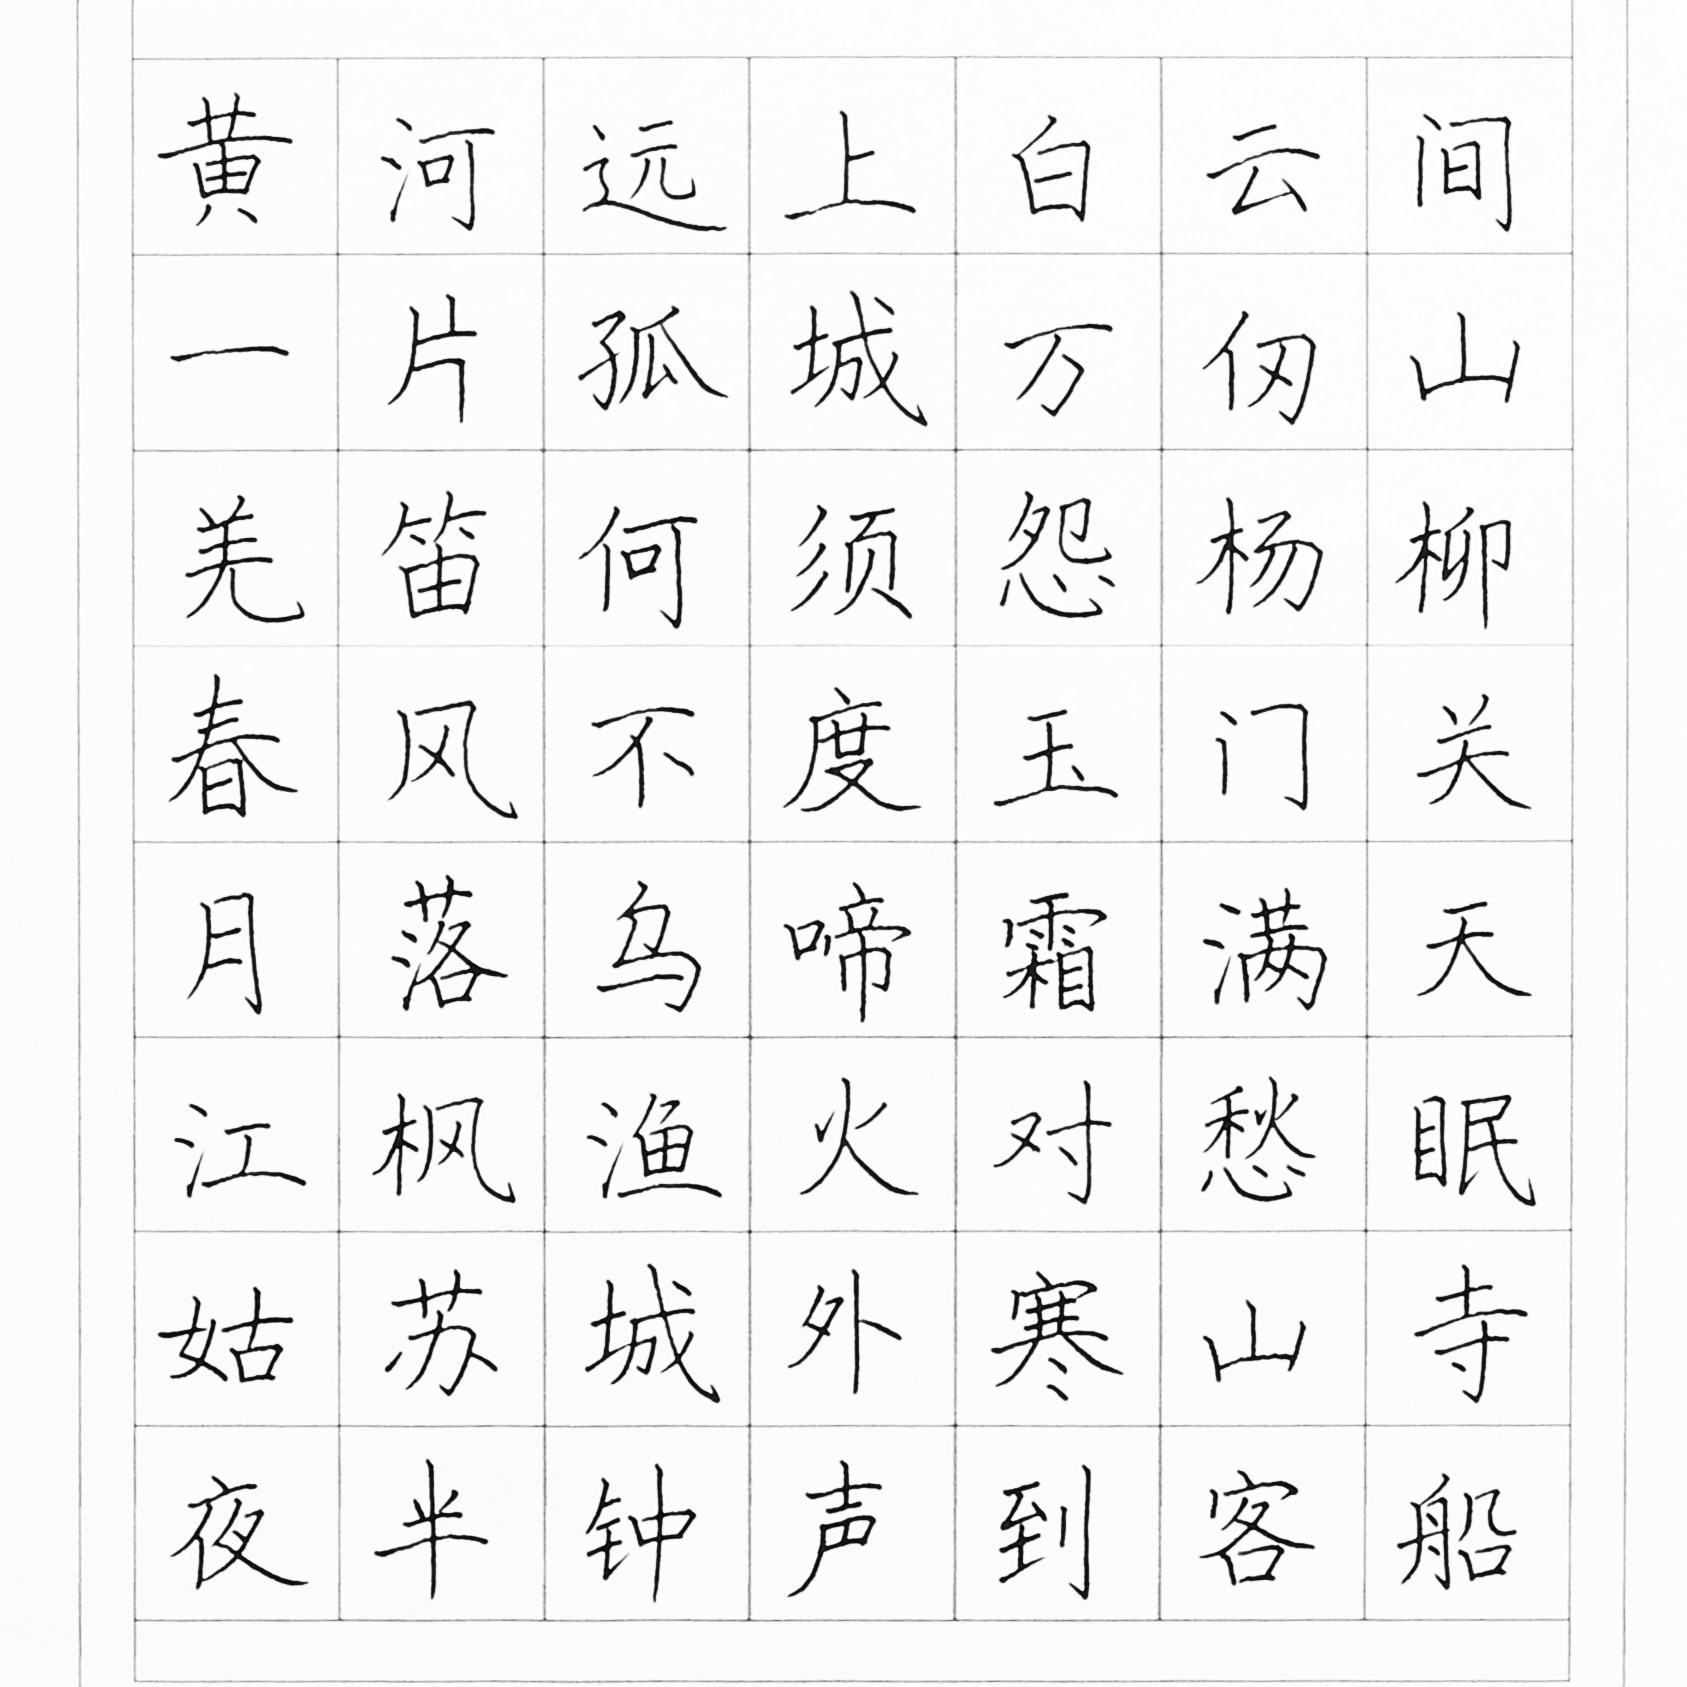 黄河远上白云间
一片孤城万仞山
羌笛何须怨杨柳
春风不度玉门关
月落乌啼霜满天
江枫渔火对愁眠
姑苏城外寒山寺
夜半钟声到客船